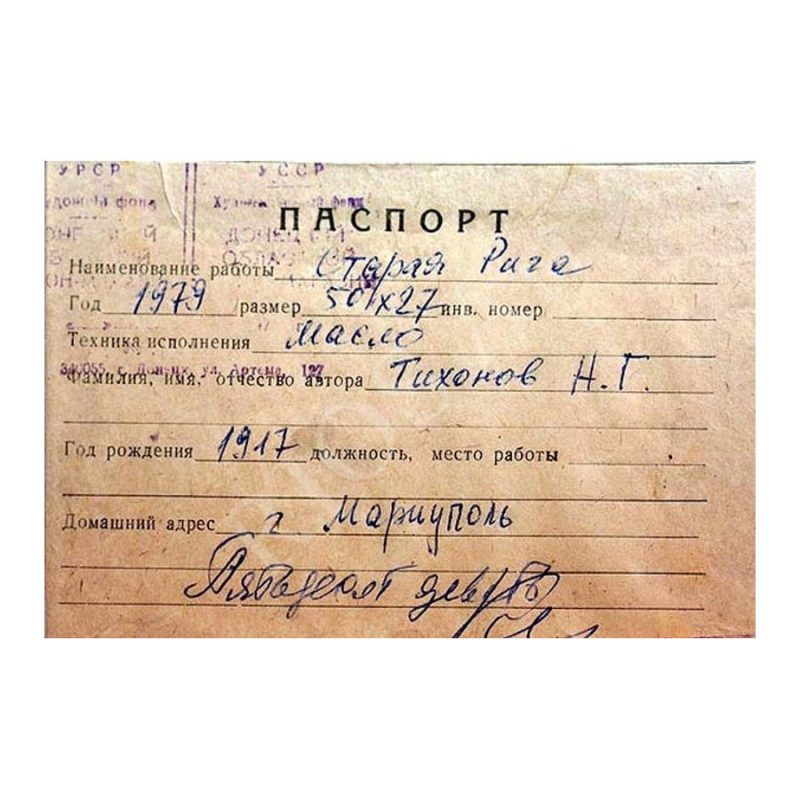 УРСР УССР
фонд Худ фонд
ПАСПОРТ
Наименование работы Старая Рига
Год 1979 размер 50х27 инв. номер
Техника исполнения Масло
340055, г. Донецк, ул. Артема, 127
Фамилия, имя, отчество автора Тихонов Н. Г.
Год рождения 1917 должность, место работы
Домашний адрес г Мариуполь
Пятьдесят девять